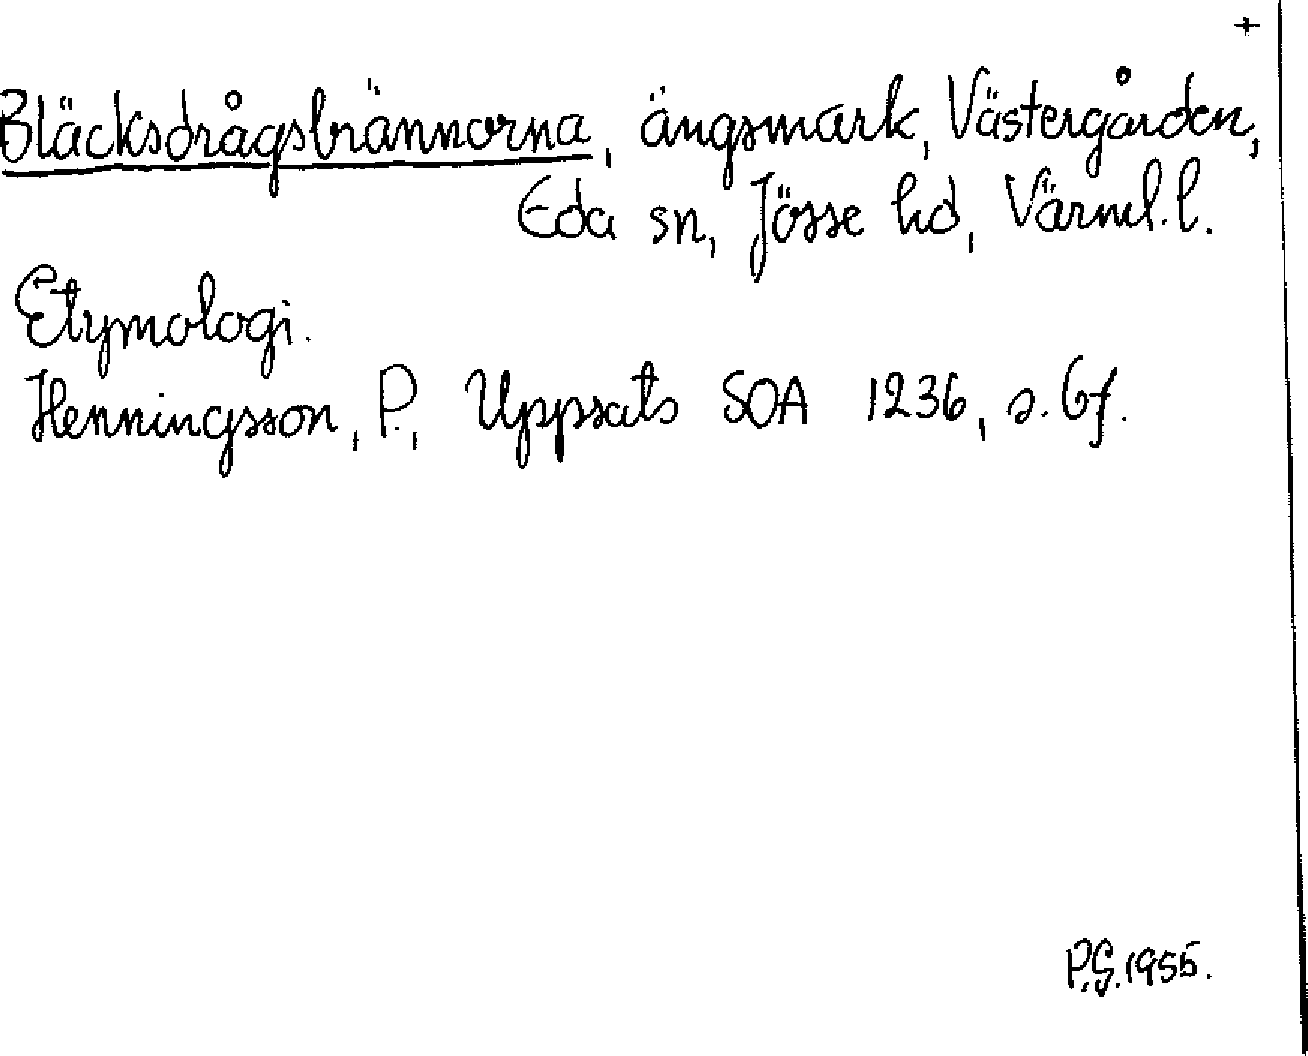 +
Bläcksdrågsbrännorna, ängsmark, Västergården,
Eda sn, Jösse hd, Värml. l.
Etymologi.
Henningsson, P., Uppsats SOA 1236, s. 6f.
P.G. 1955.